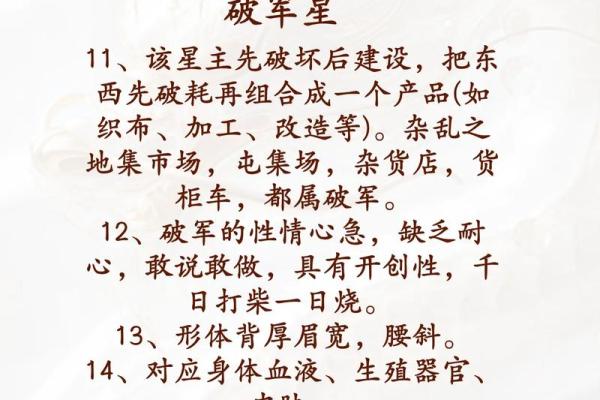 破军星
11、该星主先破坏后建设，把东
西先破耗再组合成一个产品(如
织布、加工、改造等)。杂乱之
地集市场，屯集场，杂货店，货
柜车，都属破军。
12、破军的性情心急，缺乏耐
心，敢说敢做，具有开创性，千
日打柴一日烧。
13、形体背厚眉宽，腰斜。
14、对应身体血液、生殖器官、